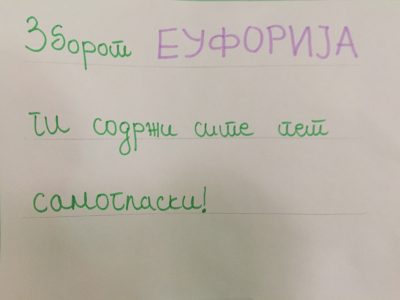 Зборот ЕУФОРИЈА
ги содржи сите пет
самогласки!